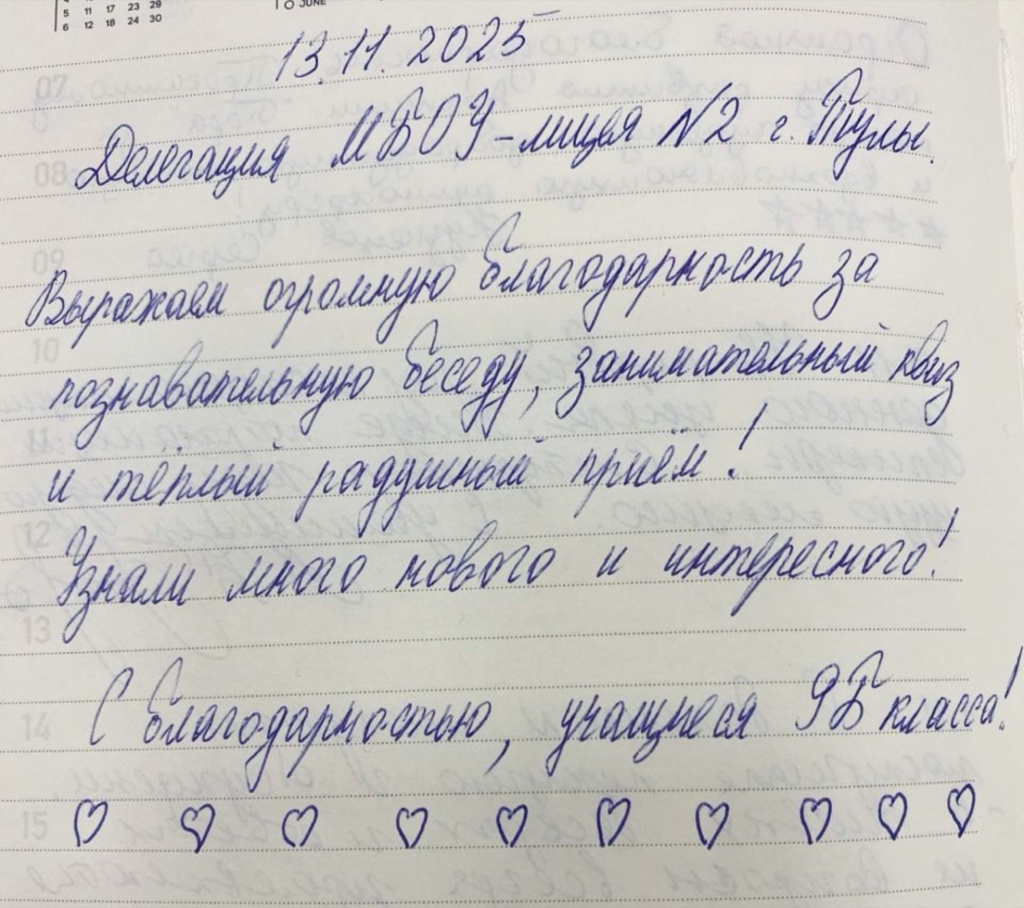 5 11 17 23 29
6 12 18 24 30
JUNE
13.11.2025
07
Делегация МБОУ-лицея №2 г. Тулы.
08
09
Выражаем огромную благодарность за
10
познавательную беседу, занимательный квиз
11
и тёплый радушный приём!
12
Узнали много нового и интересного!
13
С благодарностью, учащиеся 9Б класса!
14
15
♡ ♡ ♡ ♡ ♡ ♡ ♡ ♡ ♡ ♡